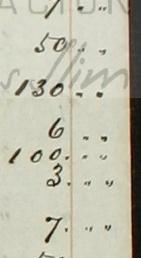 1 " "
50 " "
130 " "
6 " "
100 " "
3 " "
7 " "